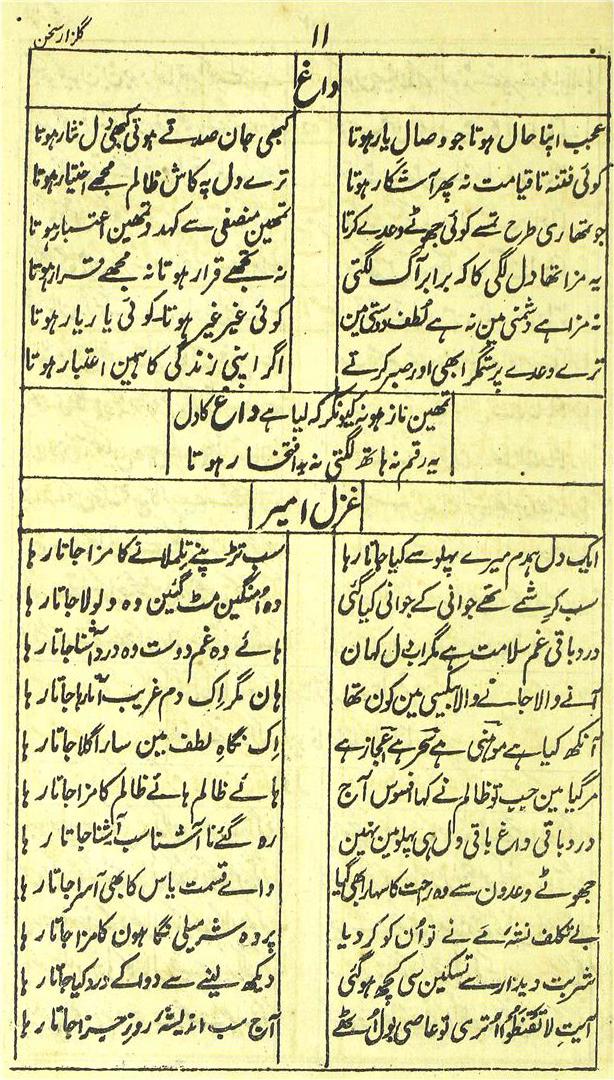 ۱۱
گلزار سخن
داغ
عجب اپنا حال ہوتا جو وصال یار ہوتا کبھی جان صدقے ہوتی کبھی دل نثار ہوتا
کوئی فتنہ تا قیامت نہ پھر آشکار ہوتا ترے دل پہ کاش ظالم مجھے اختیار ہوتا
جو تمھاری طرح تمسے کوئی جھوٹے وعدے کرتا تمھین منصفی سے کہدو تمھین اعتبار ہوتا
یہ مزا تھا دل لگی کا کہ برابر آگ لگتی نہ تجھے قرار ہوتا نہ مجھے قرار ہوتا
نہ مزا ہے دشمنی مین نہ ہے لطف دوستی مین کوئی غیر غیر ہوتا کوئی یار یار ہوتا
ترے وعدے پر ستمگر ابھی اور صبر کرتے اگر اپنی زندگی کا ہمین اعتبار ہوتا
تمھین ناز ہو نہ کیونکر کہ لیا ہے داغ کا دل
یہ رقم نہ ہاتھ لگتی نہ یہ افتخار ہوتا
غزل امیر
ایک دل ہمدم میرے پہلو سے کیا جاتا رہا سب تڑپنے تلملانے کا مزا جاتا رہا
سب کرشمے تھے جوانی کے جوانی کیا گئی وہ اُمنگین مٹ گئین وہ ولولا جاتا رہا
درد باقی غم سلامت ہے مگر اب دل کہان ہائے وہ غم دوست وہ درد آشنا جاتا رہا
آنے والا جانے والا بیکسی مین کون تھا ہان مگر اک دم غریب آتا رہا جاتا رہا
آنکھ کیا ہے موہنی ہے سحر ہے اعجاز ہے اِک نگاہِ لطف مین سارا گلا جاتا رہا
مر گیا مین جب تو ظالم نے کہا افسوس آج ہائے ظالم ہائے ظالم کا مزا جاتا رہا
درد باقی داغ باقی دل ہی پہلو مین نہین رہ گئے نا آشنا سب آشنا جاتا رہا
جھوٹے وعدون سے وہ راحت کا سہارا بھی گیا وائے قسمت یاس کا بھی آسرا جاتا رہا
بے تکلف نشہ مے نے تو اُن کو کر دیا پر وہ شرمیلی نگاہون کا مزا جاتا رہا
شربت دیدار سے تسکین سی کچھ ہو گئی دیکھ لینے سے دوا کے درد کیا جاتا رہا
آیت لَا تَقْنَطُوْا اُتری تو عاصی بول اُٹھے آج سب اندیشۂ روز جزا جاتا رہا